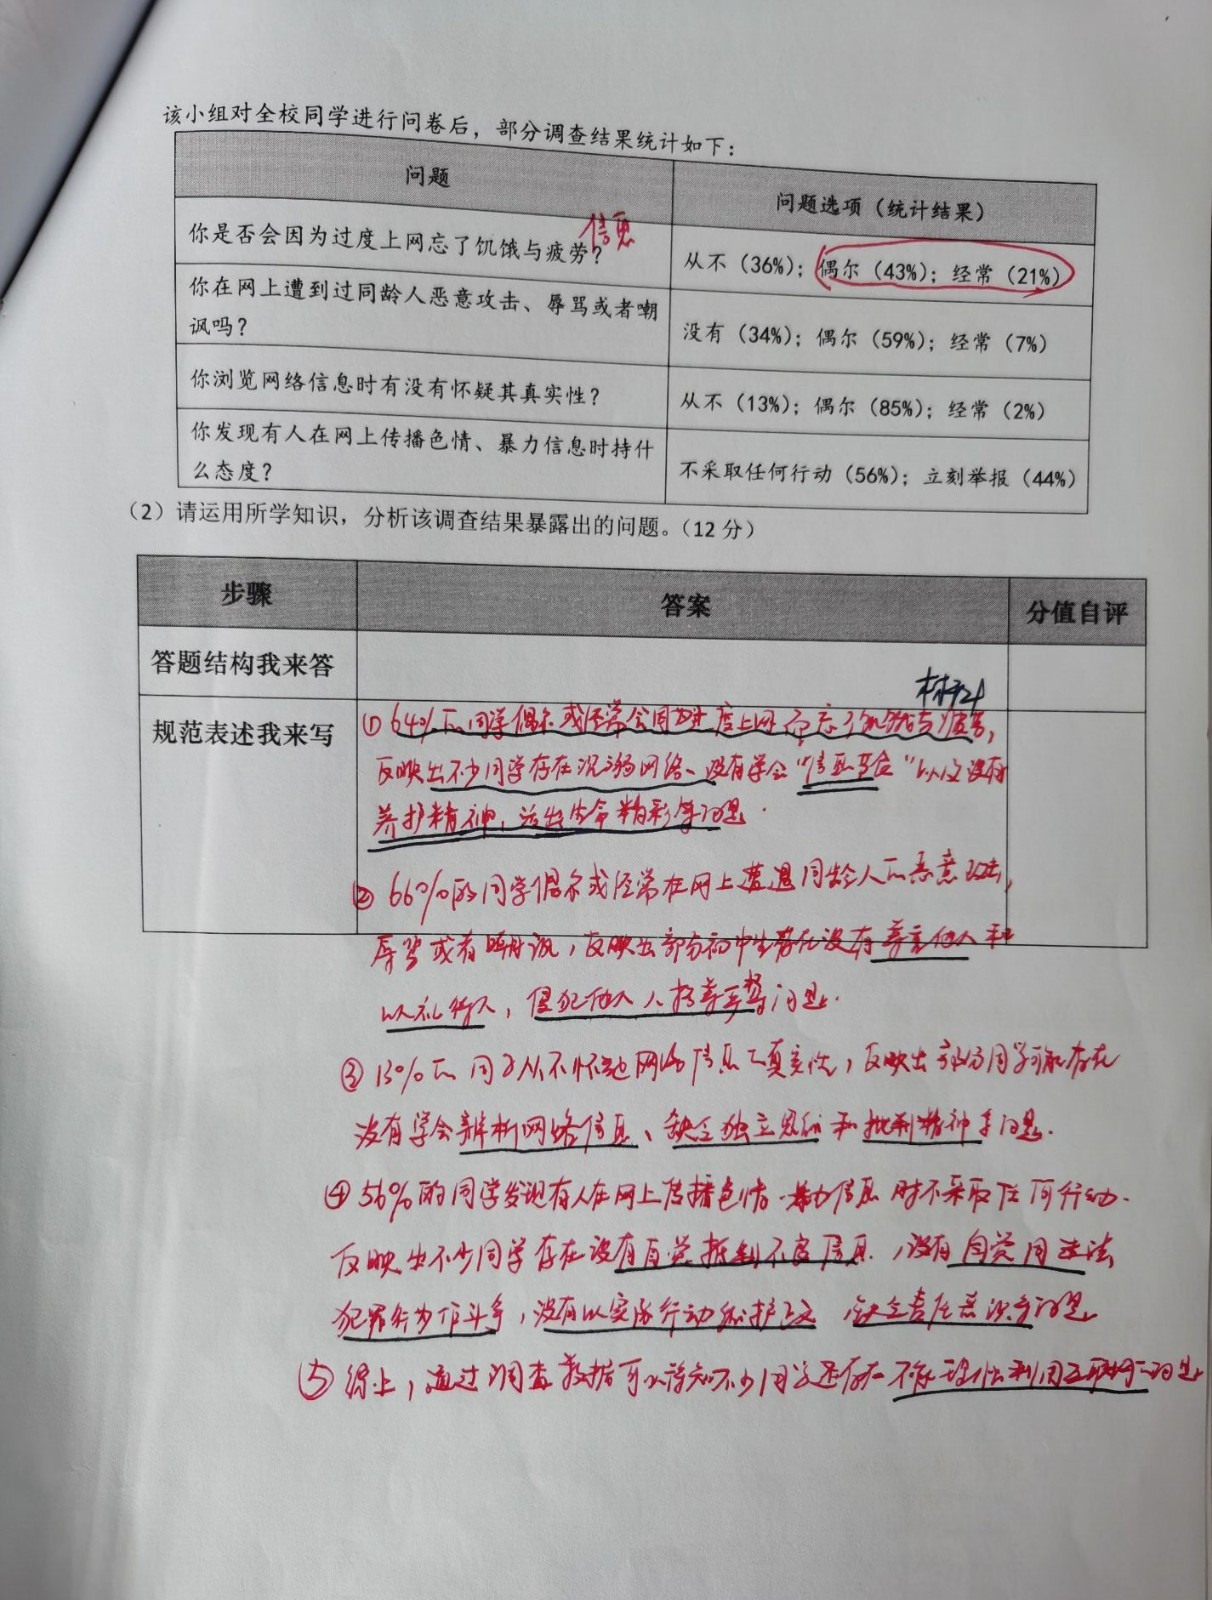 该小组对全校同学进行问卷后，部分调查结果统计如下：
问题
问题选项（统计结果）
信息
你是否会因为过度上网忘了饥饿与疲劳？
从不（36%）；偶尔（43%）；经常（21%）
你在网上遭到过同龄人恶意攻击、辱骂或者嘲
讽吗？
没有（34%）；偶尔（59%）；经常（7%）
你浏览网络信息时有没有怀疑其真实性？
从不（13%）；偶尔（85%）；经常（2%）
你发现有人在网上传播色情、暴力信息时持什
么态度？
不采取任何行动（56%）；立刻举报（44%）
（2）请运用所学知识，分析该调查结果暴露出的问题。（12 分）
步骤
答案
分值自评
答题结构我来答
材料
规范表述我来写
① 64%的同学偶尔或经常会因过度上网而忘了饥饿与疲劳，
反映出不少同学存在沉溺网络、没有学会“信息节食”以及没有
养护精神，活出生命精彩等问题．
② 66%的同学偶尔或经常在网上遭遇同龄人的恶意攻击，
辱骂或者嘲讽，反映出部分初中生存在没有尊重他人和
以礼待人，侵犯他人人格尊严等问题．
③ 13%的同学从不怀疑网络信息的真实性，反映出部分同学可能存在
没有学会辨析网络信息、缺乏独立思维和批判精神等问题．
④ 56%的同学发现有人在网上传播色情、暴力信息时不采取任何行动．
反映出不少同学存在没有自觉抵制不良信息，没有自觉同违法
犯罪行为作斗争，没有以实际行动维护正义 缺乏责任意识等问题
⑤ 综上，通过调查数据可以得知不少同学还存在不能理性利用互联网的问题